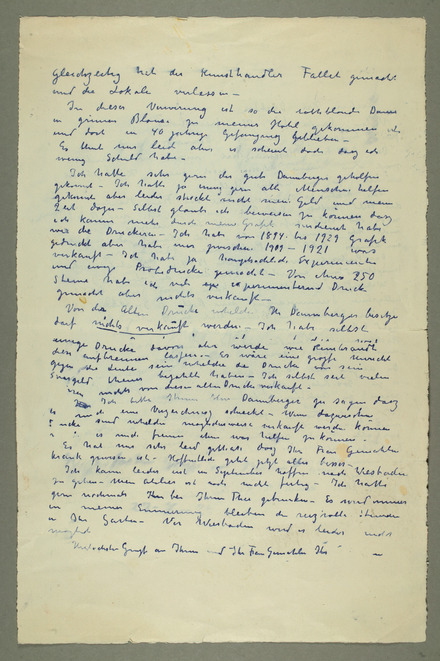 Gleichzeitig hat der Kunsthändler Fallet gemacht
und die Lokale verlassen –
In dieser Verwirrung ist so die rothblonde Dame
in grüner Blouse zu meinem Hotel gekommen
und dort in 40 jährige Gefangung geblieben –
Es thut mir leid aber es scheint doch dass ich
wenig Schuld habe –
Ich hätte sehr gern der Damburger geholfen
gekonnt – Ich hätte ja ewig gern alle Menschen helfen
gekonnt aber leider streckt nicht mein Geld und meine
Zeit dazu – Selbst glaube ich beweisen zu können dass
ich kaum mehr durch meine Grafik verdient habe
wie die Druckerei – Ich habe von 1894 bis 1929 Grafik
gedruckt aber habe nur zwischen 1909 – 1921 was
verkauft – Ich habe ja hauptsächlich Experimente
und ewige Probedrucke gemacht – Von etwa 250
Steine habe ich viele experimentierend Druck
gemacht aber nichts verkauft –
Von die Alten Drucke welche H. Damburger besitze
darf nichts verkauft werden – Ich habe selbst
einige Drucke davon aber würde wie Rembrandt
diese aufbrennen lassen – Es wäre eine grosse Unrecht
gegen die Leute sein welche die Drucke von
bezahlt haben – Ich selbst seit vielen
nichts von diesen alten Drucke verkauft –
Ich bitte Ihnen Damburger zu sagen dass
es mich eine Vergreichung scheint – Wenn dazwischen
Drucke sind welche möglicherweise verkauft werde können
ist es mich freuen ihm was helfen zu können –
Es hat mir sehr leid gethan dass Ihr Frau Gemahlin
krank gewesen ist – Hoffentlich geht jetzt alles besser –
Ich kann leider erst im September hoffen nach Wiesbaden
zu gehen – Mein Atelier ist noch nicht fertig – Ich hätte
gern nochmals bei Ihnen Thee getrunken – Es wird immer
in meiner Erinnerung bleiben die reizvolle Stunden
in Ihr Garten – Vor Wiesbaden wird es leider nicht
möglich
Herzlichste Grüsse an Ihnen und Ihr Frau Gemahlin Ihr